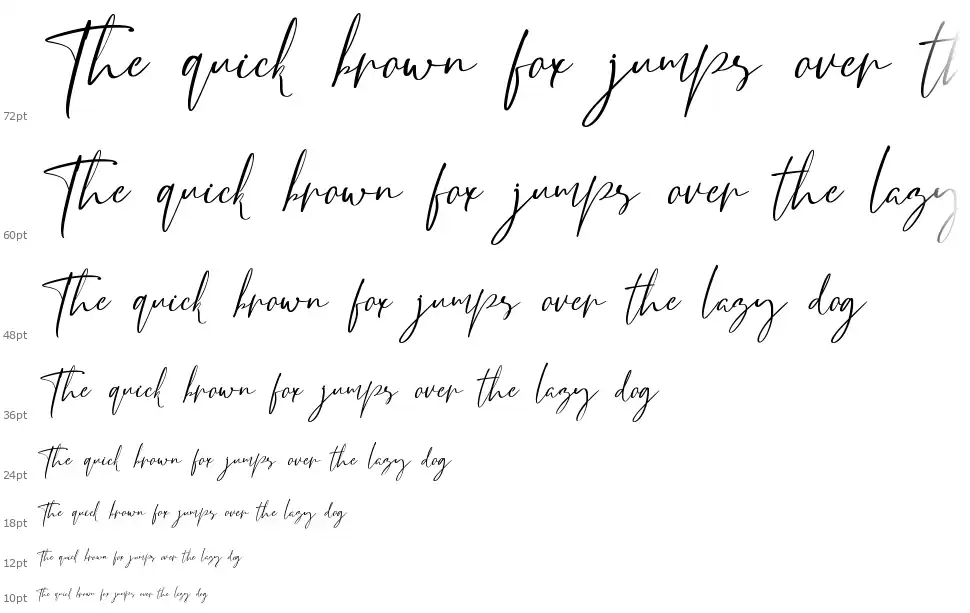 The quick brown fox jumps over th
72pt
The quick brown fox jumps over the lazy
60pt
The quick brown fox jumps over the lazy dog
48pt
The quick brown fox jumps over the lazy dog
36pt
The quick brown fox jumps over the lazy dog
24pt
The quick brown fox jumps over the lazy dog
18pt
The quick brown fox jumps over the lazy dog
12pt
The quick brown fox jumps over the lazy dog
10pt